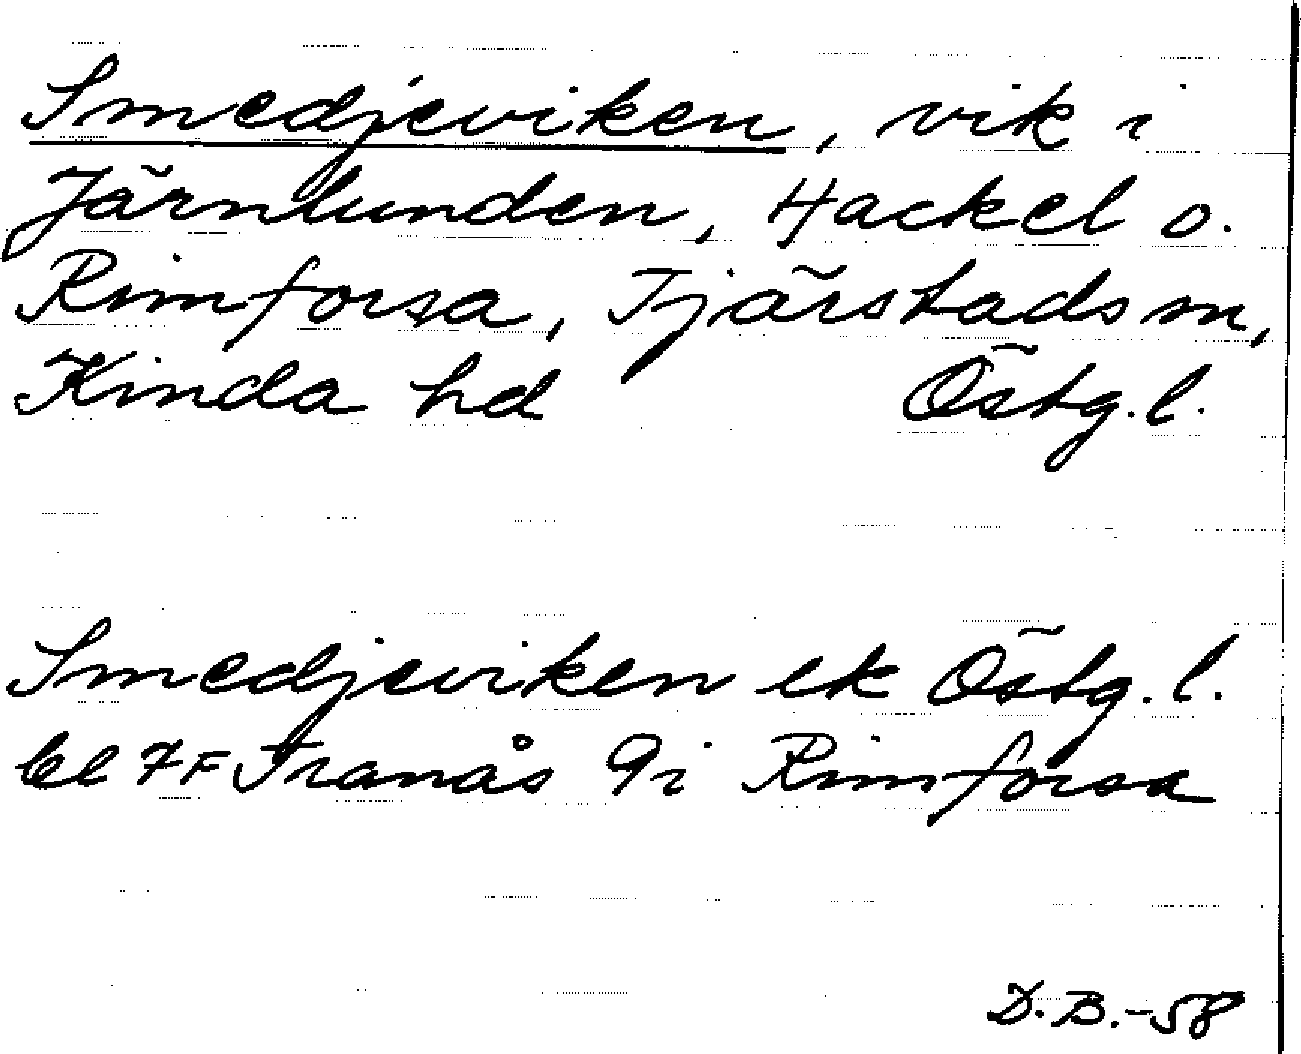 Smedjeviken, vik i
Järnlunden, Hackel o.
Rimforsa, Tjärstads sn,
Kinda hd Östg. l.
Smedjeviken ek Östg. l.
bl 7F Tranås 9i Rimforsa
D.B.-58